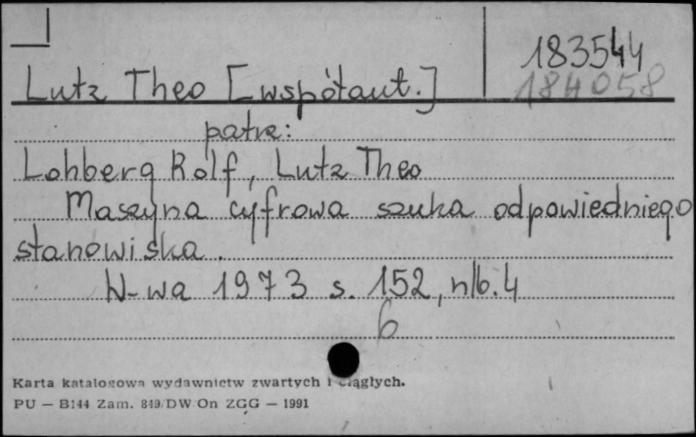 183544
184058
Lutz Theo [współaut.]
patrz:
Lohberg Rolf, Lutz Theo
Maszyna cyfrowa szuka odpowiedniego
stanowiska.
W-wa 1973 s. 152, nlb. 4
6
Karta katalogowa wydawnictw zwartych i ciągłych.
PU — B144 Zam. 849/DW/On ZGG — 1991